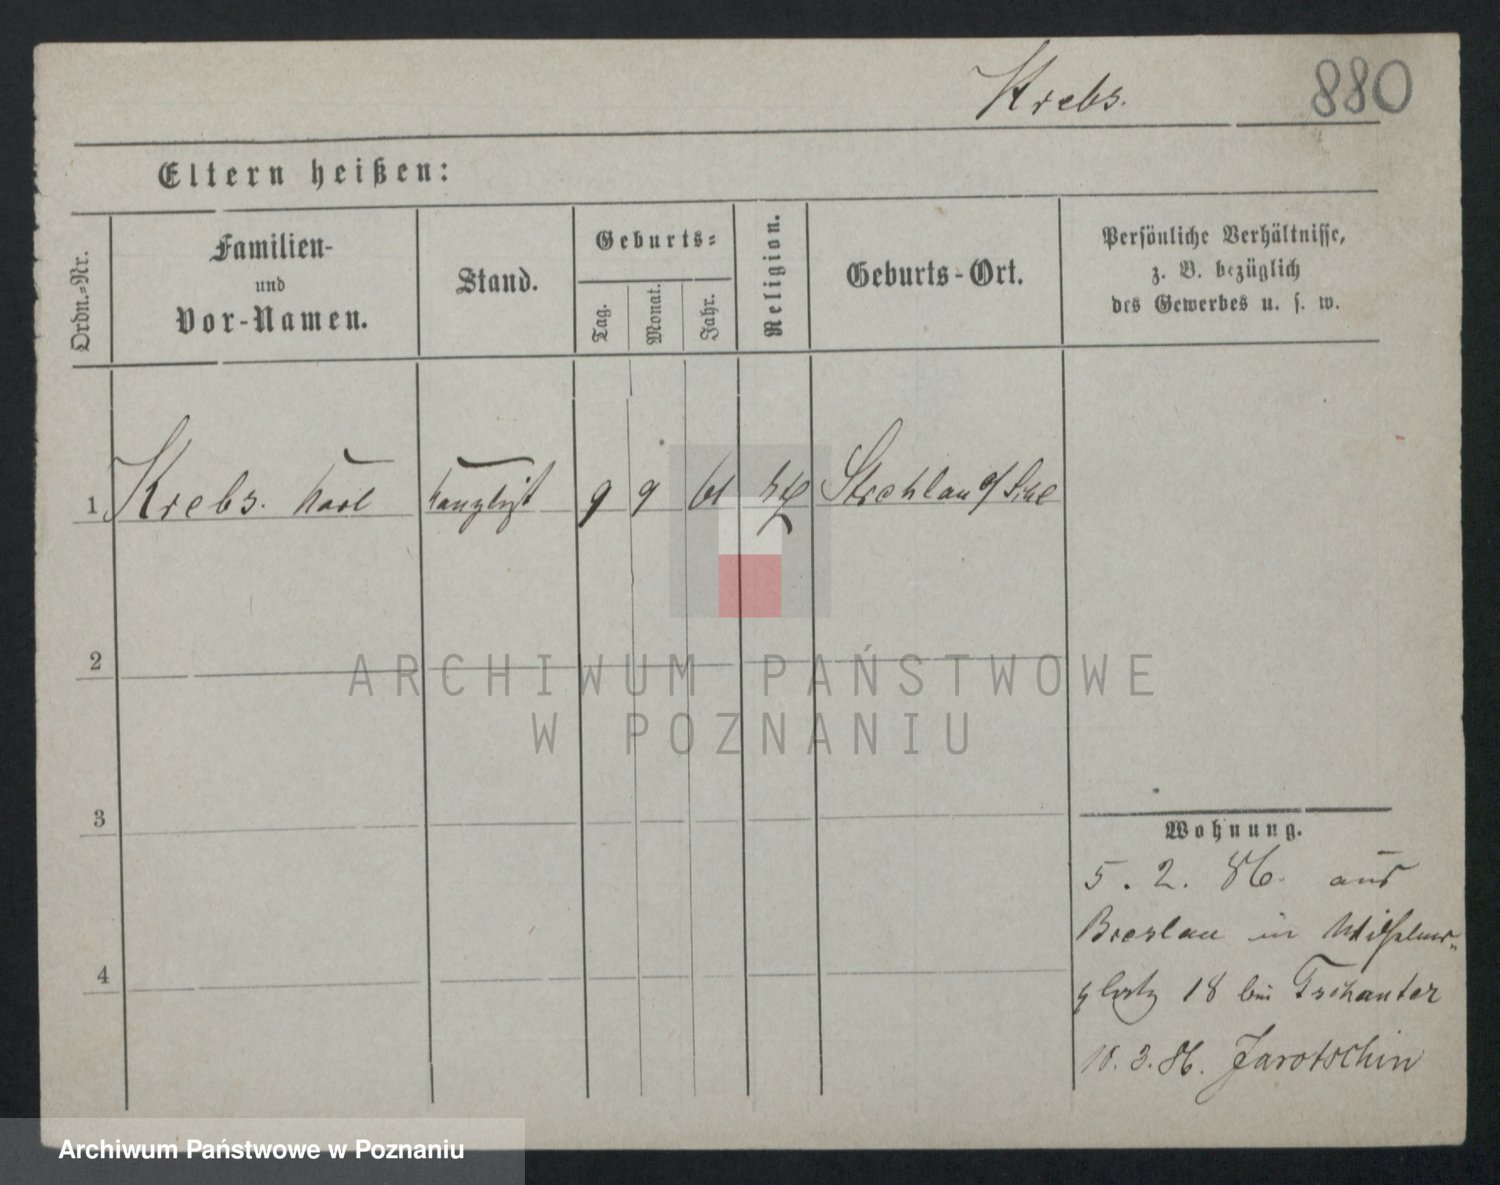 Krebs.
880
Eltern heißen:
Ordn.-Nr.
Familien-
und
Vor-Namen.
Stand.
Geburts-
Tag.
Monat.
Jahr.
Religion.
Geburts-Ort.
Persönliche Verhältnisse,
z. B. bezüglich
des Gewerbes u. s. w.
1 Krebs. Karl Kanzlist 9 9 61 Strehlau
2
ARCHIWUM PAŃSTWOWE
W POZNANIU
3
Wohnung.
5. 2. 86. aus
Breslau in Wilhelms-
platz 18 bei Tschanter
10. 3. 86. Jarotschin
4
Archiwum Państwowe w Poznaniu